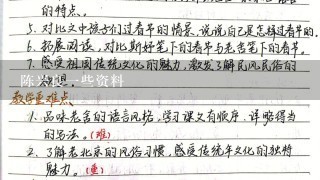 的特点。
5. 对比文中孩子们过春节的情景,说说自己是怎样过春节的。
6. 拓展阅读,对比斯妤笔下的春节与老舍笔下的春节。
7. 感受祖国传统文化的魅力,激发了解民风民俗的
陈 一些资料
教学重难点
1. 品味老舍的语言风格,学习课文有顺序、详略得当
的写法。(难)
2. 了解老北京的风俗习惯,感受传统年文化的独特
魅力。(重)